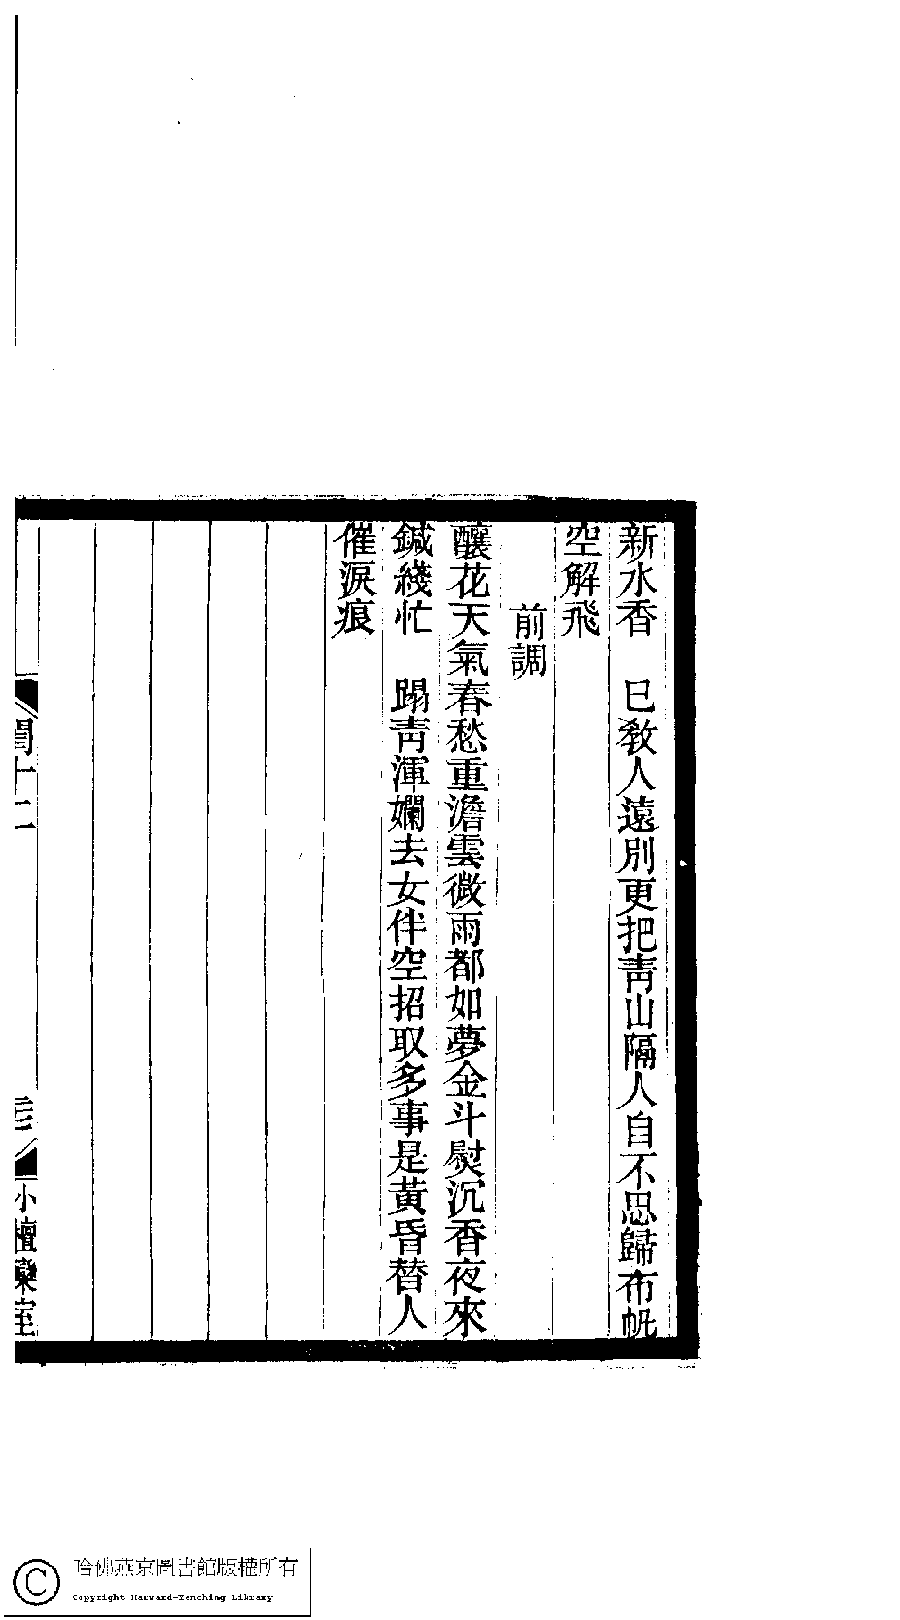 新水香　已敎人遠別更把靑山隔人自不思歸布帆
空解飛
前調
釀花天氣春愁重澹雲微雨都如夢金斗熨沉香夜來
鍼綫忙　蹋靑渾嬾去女伴空招取多事是黃昏替人
催淚痕
閏十二
小檀欒室
哈佛燕京圖書館版權所有
Copyright Harvard-Yenching Library